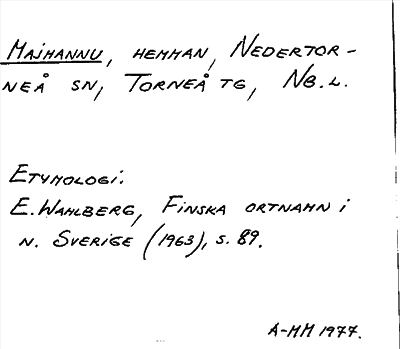 MAJHANNU, HEMMAN, NEDERTOR-
NEÅ SN, TORNEÅ TG, NB.L.
ETYMOLOGI:
E. WAHLBERG, FINSKA ORTNAMN I
N. SVERIGE (1963), S. 89.
A-MM 1977.